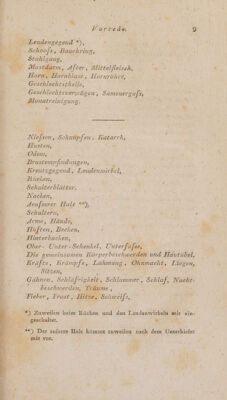 Vorrede. 9
Lendengegend *),
Schooſs, Bauchring,
Stuhlgang,
Mastdarm, After, Mittelfleisch,
Harn, Harnblase, Harnröhre,
Geschlechtstheile,
Geschlechtsvermögen, Samenerguſs,
Monatreinigung.
Nieſsen, Schnupfen, Katarrh,
Husten,
Odem,
Brustempfindungen,
Kreutzgegend, Lendenwirbel,
Rücken,
Schulterblätter,
Nacken,
Aeuſserer Hals **),
Schultern,
Arme, Hände,
Hüften, Becken,
Hinterbacken,
Ober- Unter-Schenkel, Unterfüſse.
Die gemeinsamen Körperbeschwerden und Hautübel.
Kräfte, Krämpfe, Lähmung, Ohnmacht, Liegen,
Sitzen,
Gähnen, Schläfrigkeit, Schlummer, Schlaf, Nacht-
beschwerden, Träume,
Fieber, Frost, Hitze, Schweiſs,
*) Zuweilen beim Rücken und den Lendenwirbeln mit ein-
geschaltet.
**) Der äuſsere Hals kömmt zuweilen nach dem Unterkiefer
mit vor.